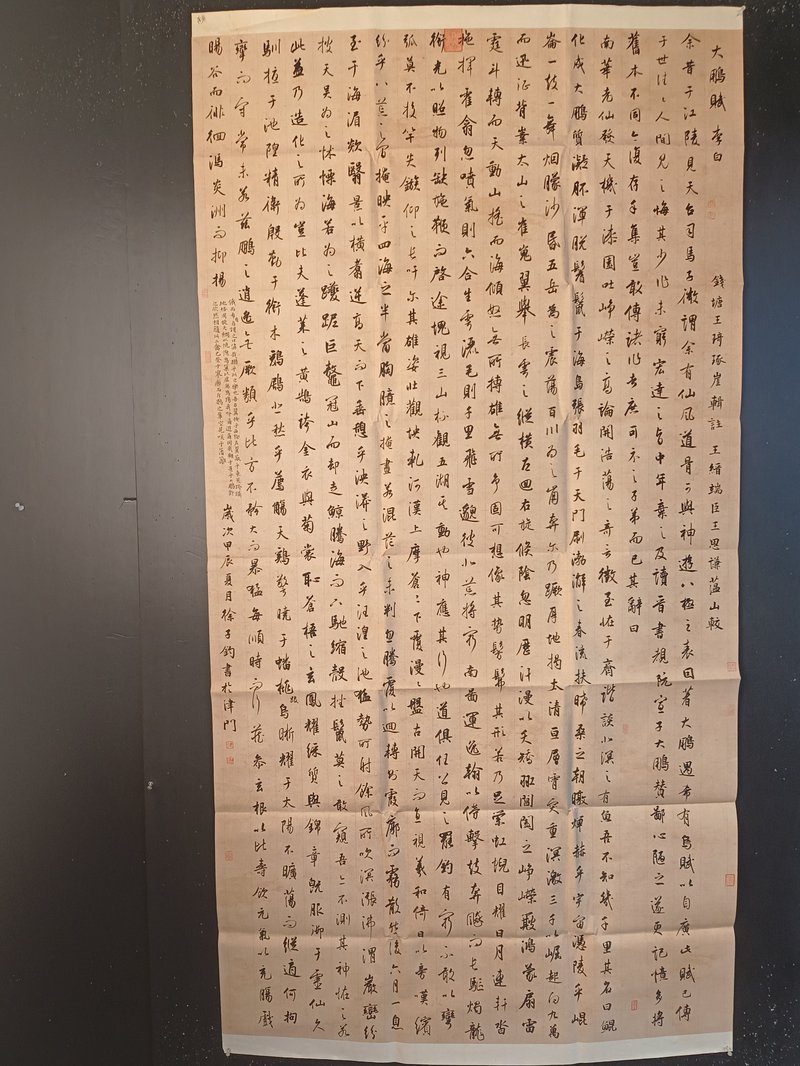 大鵬賦 李白 錢塘王琦琢崖輯註 王縉端臣王思謙蘊山較
余昔于江陵見天台司馬子微謂余有仙風道骨可與神遊八極之表因著大鵬遇希有鳥賦以自廣此賦已傳
于世往往人間見之悔其少作未窮宏達之旨中年棄之及讀晉書覩阮宣子大鵬贊鄙心陋之遂更記憶多將
舊本不同今復存手集豈敢傳諸作者庶可示之子弟而已其辭曰
南華老仙發天機于漆園吐崢嶸之高論開浩蕩之奇言徵至怪于齊諧談北溟之有魚吾不知幾千里其名曰鯤
化成大鵬質凝胚渾脫鬐鬣于海島張羽毛于天門刷渤澥之春流扶晞桑之朝暾燀赫乎宇宙憑陵乎崐
崙一鼓一舞烟朦沙昏五岳為之震蕩百川為之崩奔尔乃蹶厚地揭太清亘層霄突重溟激三千以崛起向九萬
而迅征背嶪太山之崔嵬翼舉長雲之縱橫左迴右旋倏陰忽明歷汗漫以夭矯羾閶闔之崢嶸簸鴻蒙扇雷
霆斗轉而天動山搖而海傾怒無所搏雄無所爭固可想像其勢髣髴其形若乃足縈虹蜺目耀日月連軒沓
拖揮霍翕忽噴氣則六合生雲洒毛則千里飛雪邈彼北荒將窮南圖運逸翰以傍擊鼓奔飈而長驅燭龍
銜光以照物列缺施鞭而啓途塊視三山杯觀五湖其動也神應其行也道俱任公見之罷釣有窮不敢以彎
弧莫不投竿失鏃仰之長吁尔其雄姿壯觀坱軋河漢上摩蒼蒼下覆漫漫盤古開天而直視羲和倚日以旁嘆繽
紛乎八荒之間掩映乎四海之半當胸臆之掩晝若混茫之未判忽騰覆以迴轉則霞廓而霧散然後六月一息
至于海湄欻翳景以橫翥逆高天而下垂憩乎泱漭之野入乎汪湟之池猛勢所射餘風所吹溟漲沸渭巖巒紛
披天吴為之怵慄海若為之躨跜巨鼇冠山而却走鯨騰海而下馳縮殼挫鬣莫之敢窺吾亦不測其神怪之若
此蓋乃造化之所為豈比夫蓬萊之黃鵠誇金衣與菊裳恥蒼梧之玄鳳耀綵質與錦章既服御于靈仙久
馴擾于池隍精衛殷勤于銜木鶢鶋悲愁乎薦觴天鷄警曉于蟠桃踆烏晰耀于太陽不曠蕩而縱適何拘
攣而守常未若茲鵬之逍遙無厥類乎比方不矜大而暴猛每順時而行藏參玄根以比壽飲元氣以充腸戲
暘谷而徘徊馮炎洲而抑揚
俄而希有鳥見謂之曰偉哉鵬乎此之樂也吾右翼掩乎西極左翼蔽乎東荒跨躡
地絡周旋天綱以恍惚為巢以虛無為場我呼爾遊爾同我翔于是乎大鵬許
之欣然相隨此二禽已登于寥廓而斥鷃之輩空見笑于藩籬
歲次甲辰夏月徐子鈞書於津門